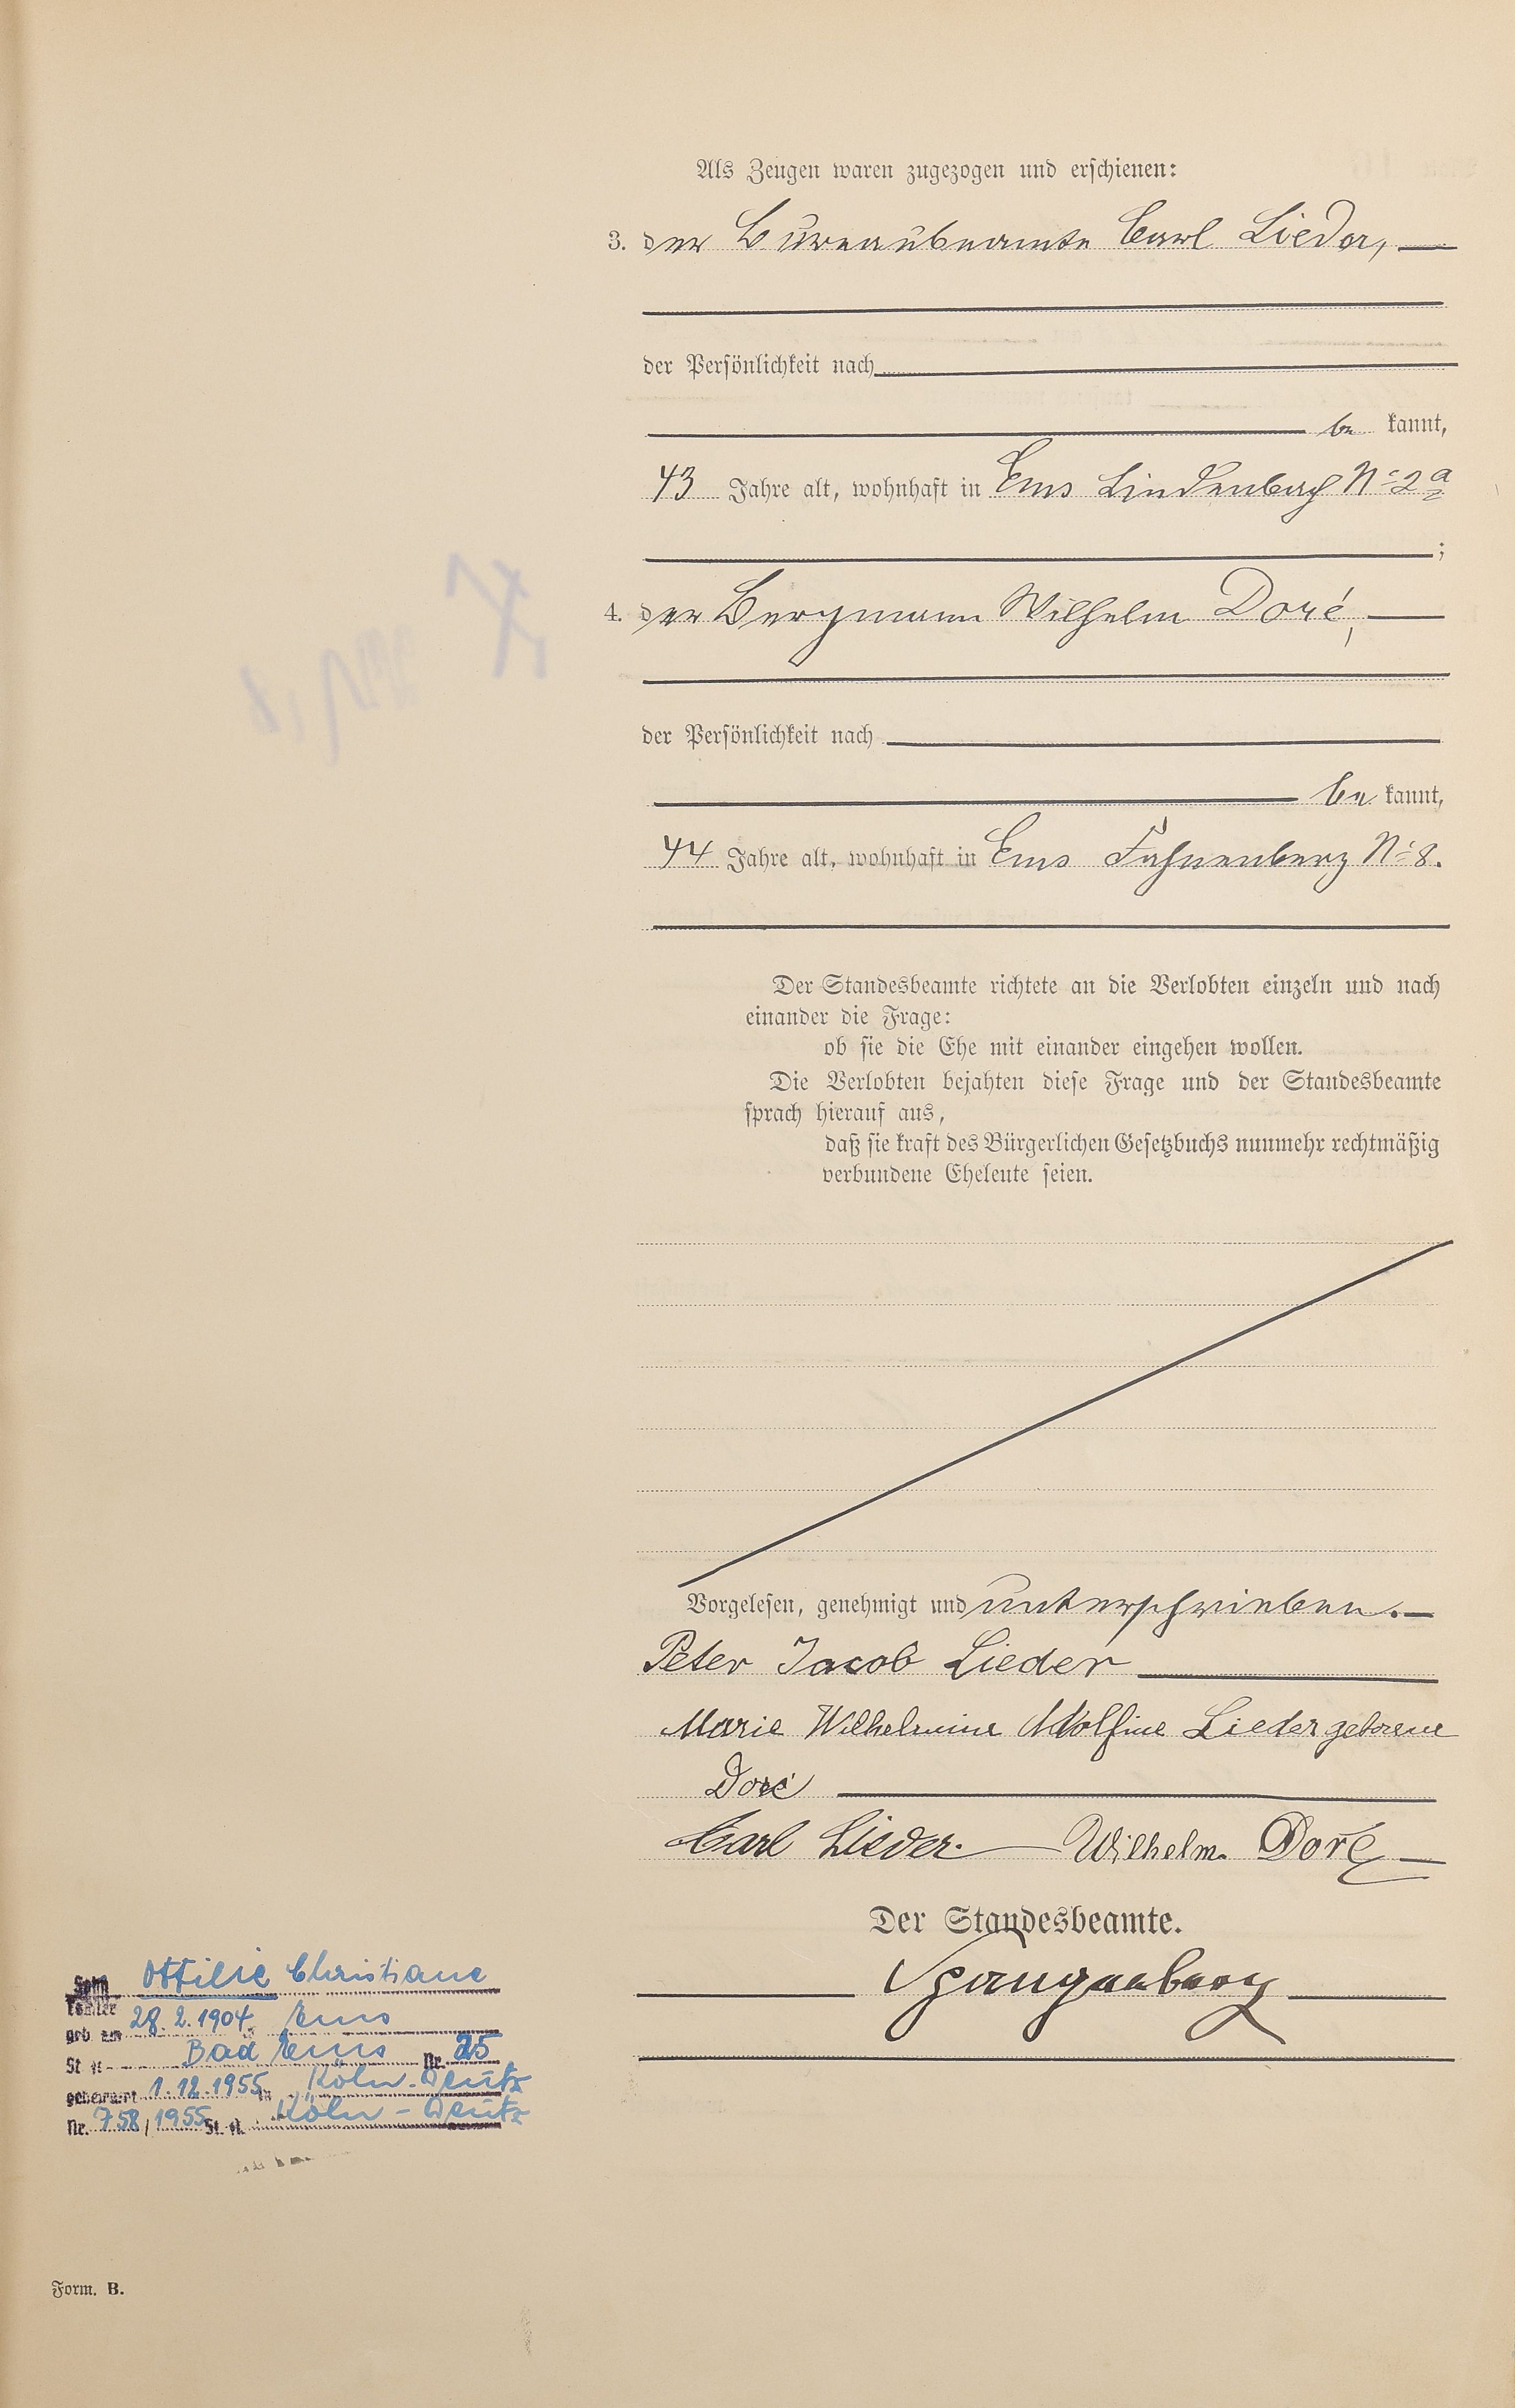 Als Zeugen waren zugezogen und erschienen:
3. der Bureaubeamte Carl Lieder,
der Persönlichkeit nach
be kannt,
43 Jahre alt, wohnhaft in Ems Lindenbach No 2 a
;
4. der Bergmann Wilhelm Doré,
der Persönlichkeit nach
be kannt,
44 Jahre alt, wohnhaft in Ems Fahnenberg No 8.
Der Standesbeamte richtete an die Verlobten einzeln und nach
einander die Frage:
ob sie die Ehe mit einander eingehen wollen.
Die Verlobten bejahten diese Frage und der Standesbeamte
sprach hierauf aus,
daß sie kraft des Bürgerlichen Gesetzbuchs nunmehr rechtmäßig
verbundene Eheleute seien.
Vorgelesen, genehmigt und unterschrieben.
Peter Jacob Lieder
Marie Wilhelmine Adolfine Lieder geborene
Doré
Carl Lieder. Wilhelm Doré
Der Standesbeamte.
Spangenberg
Sohn Ottilie Christiane
Tochter
geb. am 28.2.1904 Ems
St A Bad Ems Nr. 25
geheiratet 1.12.1955 in Köln-Deutz
Nr. 758/1955 St. A. Köln-Deutz
Form. B.